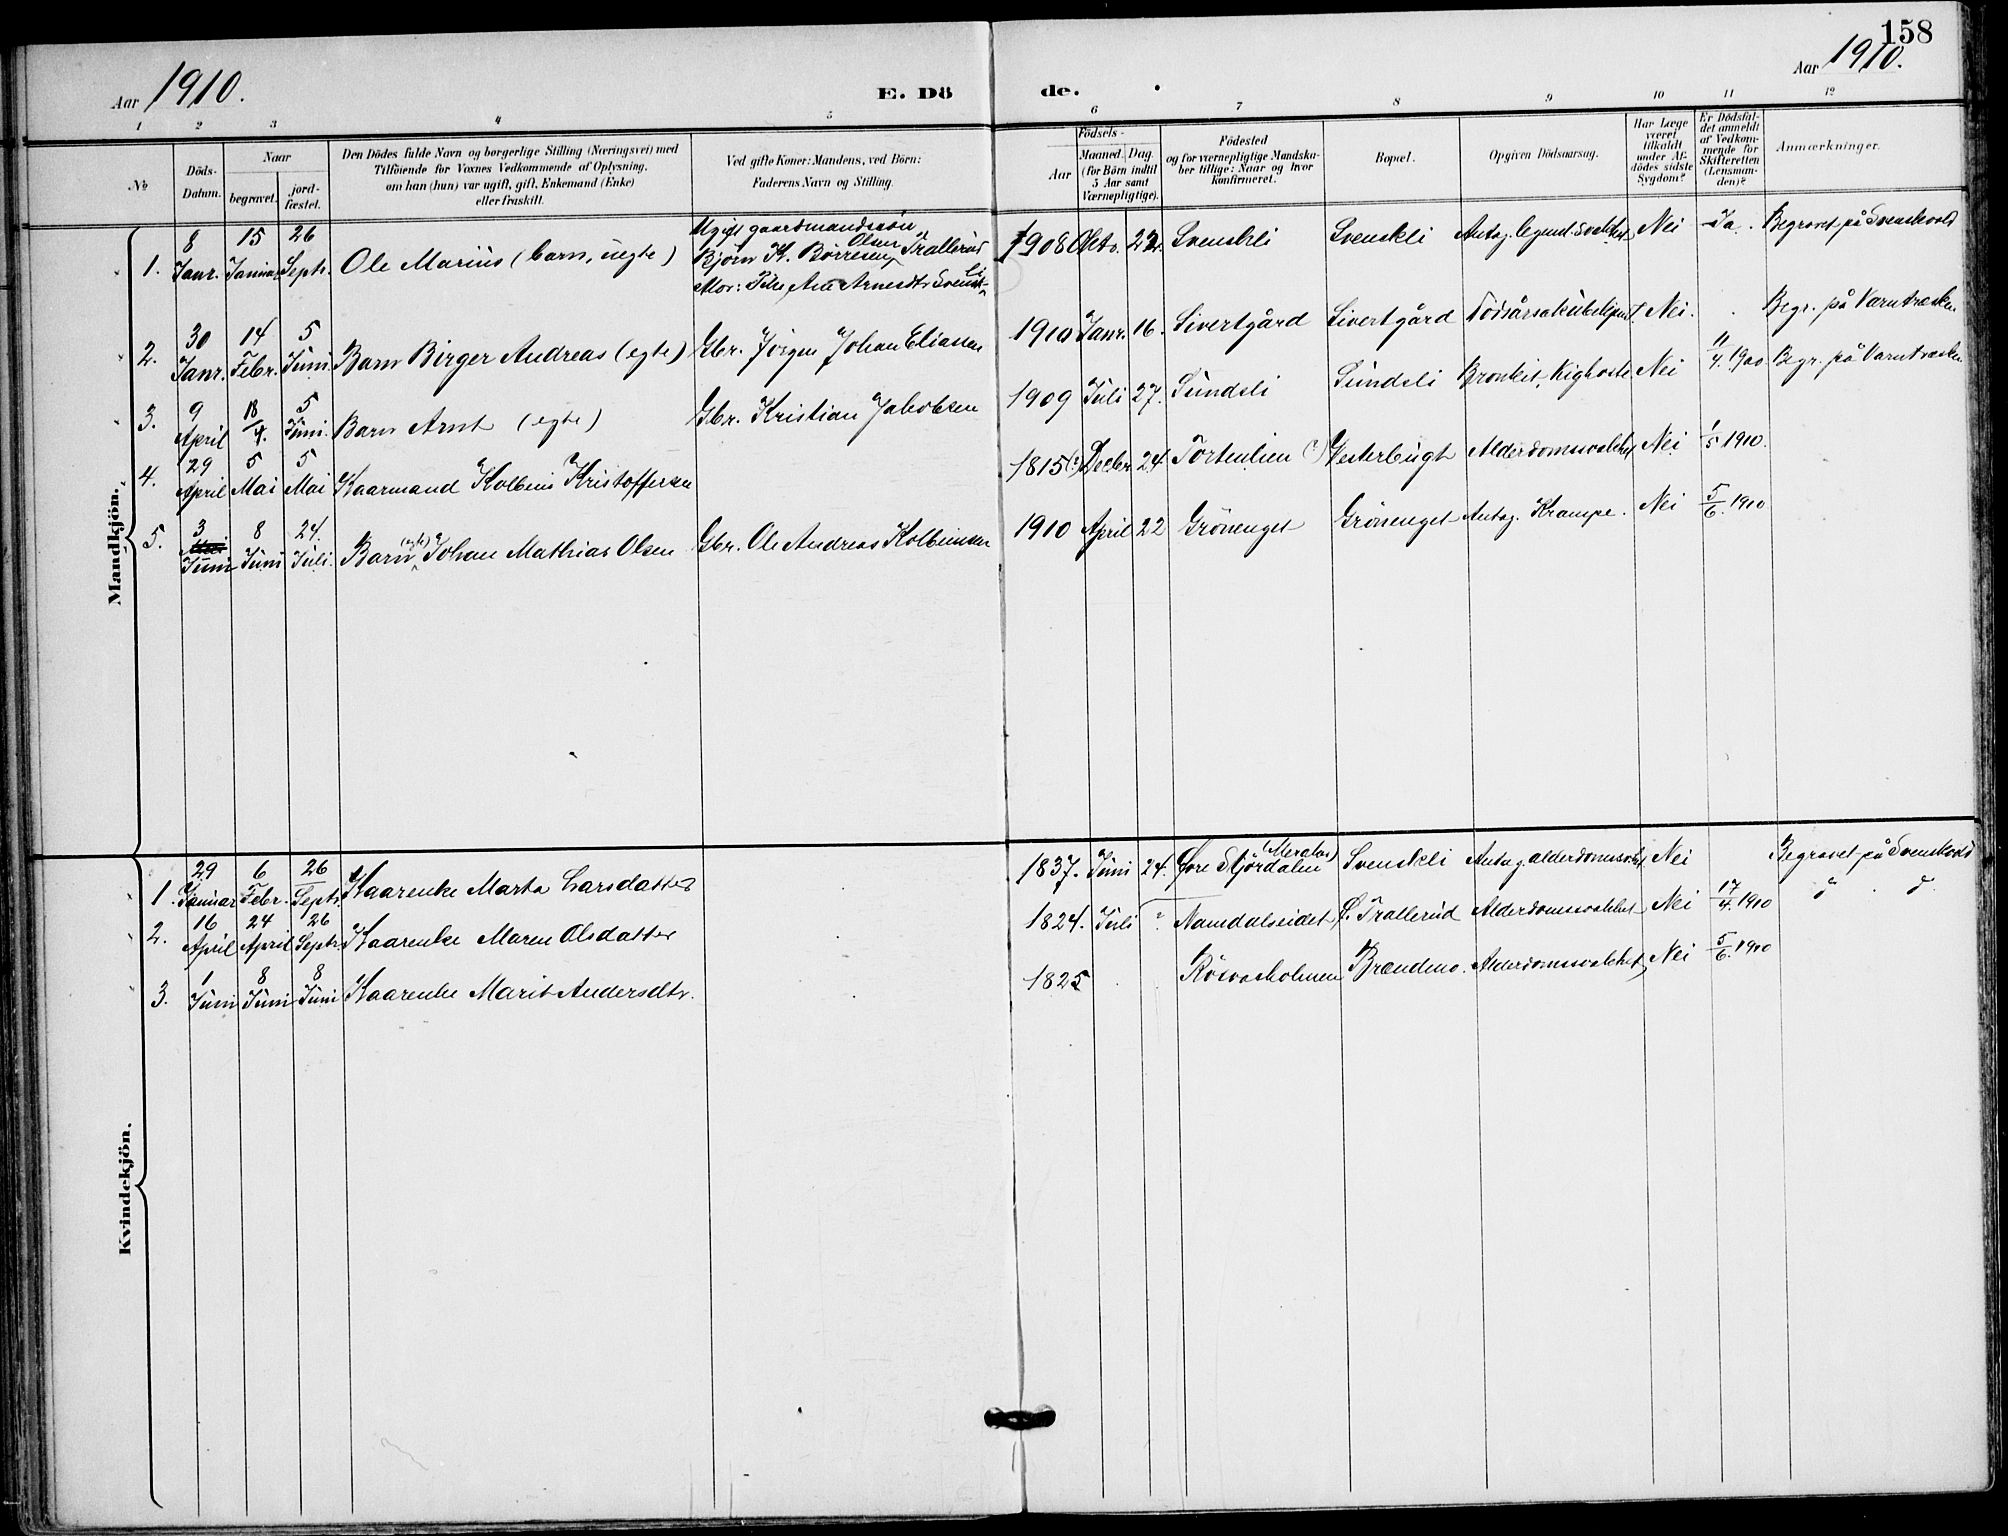 158
Aar 1910.
E. Döde.
Aar 1910.
1 2 3 4 5 6 7 8 9 10 11 12
No
Döds-Datum.
Naar
begravet.
jord-fæstet.
Den Dödes fulde Navn og borgerlige Stilling (Næringsvei) med
Tilföiende for Voxnes Vedkommende af Oplysning,
om han (hun) var ugift, gift, Enkemand (Enke)
eller fraskilt.
Ved gifte Koner: Mandens, ved Börn:
Faderens Navn og Stilling.
Födsels-
Aar
Maaned. Dag.
(for Börn indtil
5 Aar samt
Værnepligtige).
Födested
og for værnepligtige Mandska-
ber tillige: Naar og hvor
konfirmeret.
Bopæl.
Opgiven Dödsaarsag.
Har Læge
været
tilkaldt
under Af-
dödes sidste
Sygdom?
Er Dödsfal-
det anmeldt
af Vedkom-
mende for
Skifteretten
(Lensman-
den)?
Anmærkninger.
Mandkjön.
1. 8 Janr. 15 Januar 26 Septr. Ole Marius (barn, uegte) Ugift gaardmandssön Björn K. Börresen Olsen Trallerud
Mor: Pike Ane Arnesdtr Svenskli
1908 Okto. 22. Svenskli Svenskli Antag. legend. svakhet Nei Ja. Begravet på Svenskvold
2. 30 Janr. 14 Febr. 5 Juni Barn Birger Andreas (egte) Gbr. Jörgen Johan Eliassen 1910 Janr. 16. Sivertgård Sivertgård Dödsårsak ubekjent. Nei. Begr. på Varntresken
3. 9 April 18/4. 5 Juni. Barn Arnt (egte) Gbr. Kristian Jakobsen 1909 Juli 27. Sundsli Sundsli Bronkit, Kighoste. Nei 11/4. 1900 Begr. på Varntresken
4. 29 April 5 Mai 5 Mai Kaarmand Kolbeins Kristoffersen 1815(?) Decbr 24 Tortenlien (?) Vesterbugt Alderdomssvakhet Nei 1/5 1910.
5. 3 Juni 8 Juni 24. Juli. Barn (egte) Johan Mathias Olsen Gbr. Ole Andreas Kolbeinsen 1910 April 22 Grönenget Grönenget Antag. Krampe. Nei 5/6. 1910
Kvindekjön.
1. 29 Januar 6 Febr. 26 Septr. Kaarenke Marta Larsdatter 1837. Juni 24. Övre Stjördalen (Meraker) Svenskli Antag. alderdomssvakhet Nei Begravet på Svenskvold
2. 16 April 24 April 26 Septr. Kaarenke Maren Olsdatter 1824. Juli ? Namdalseidet Ö. Trallerud Alderdomssvakhet Nei 17/4. 1910
3. 1 Juni 8 Juni 8 Juni Kaarenke Marit Andersdtr. 1825 Rösvasholmen Brændmo. Alderdomssvakhet Nei 5/6. 1910